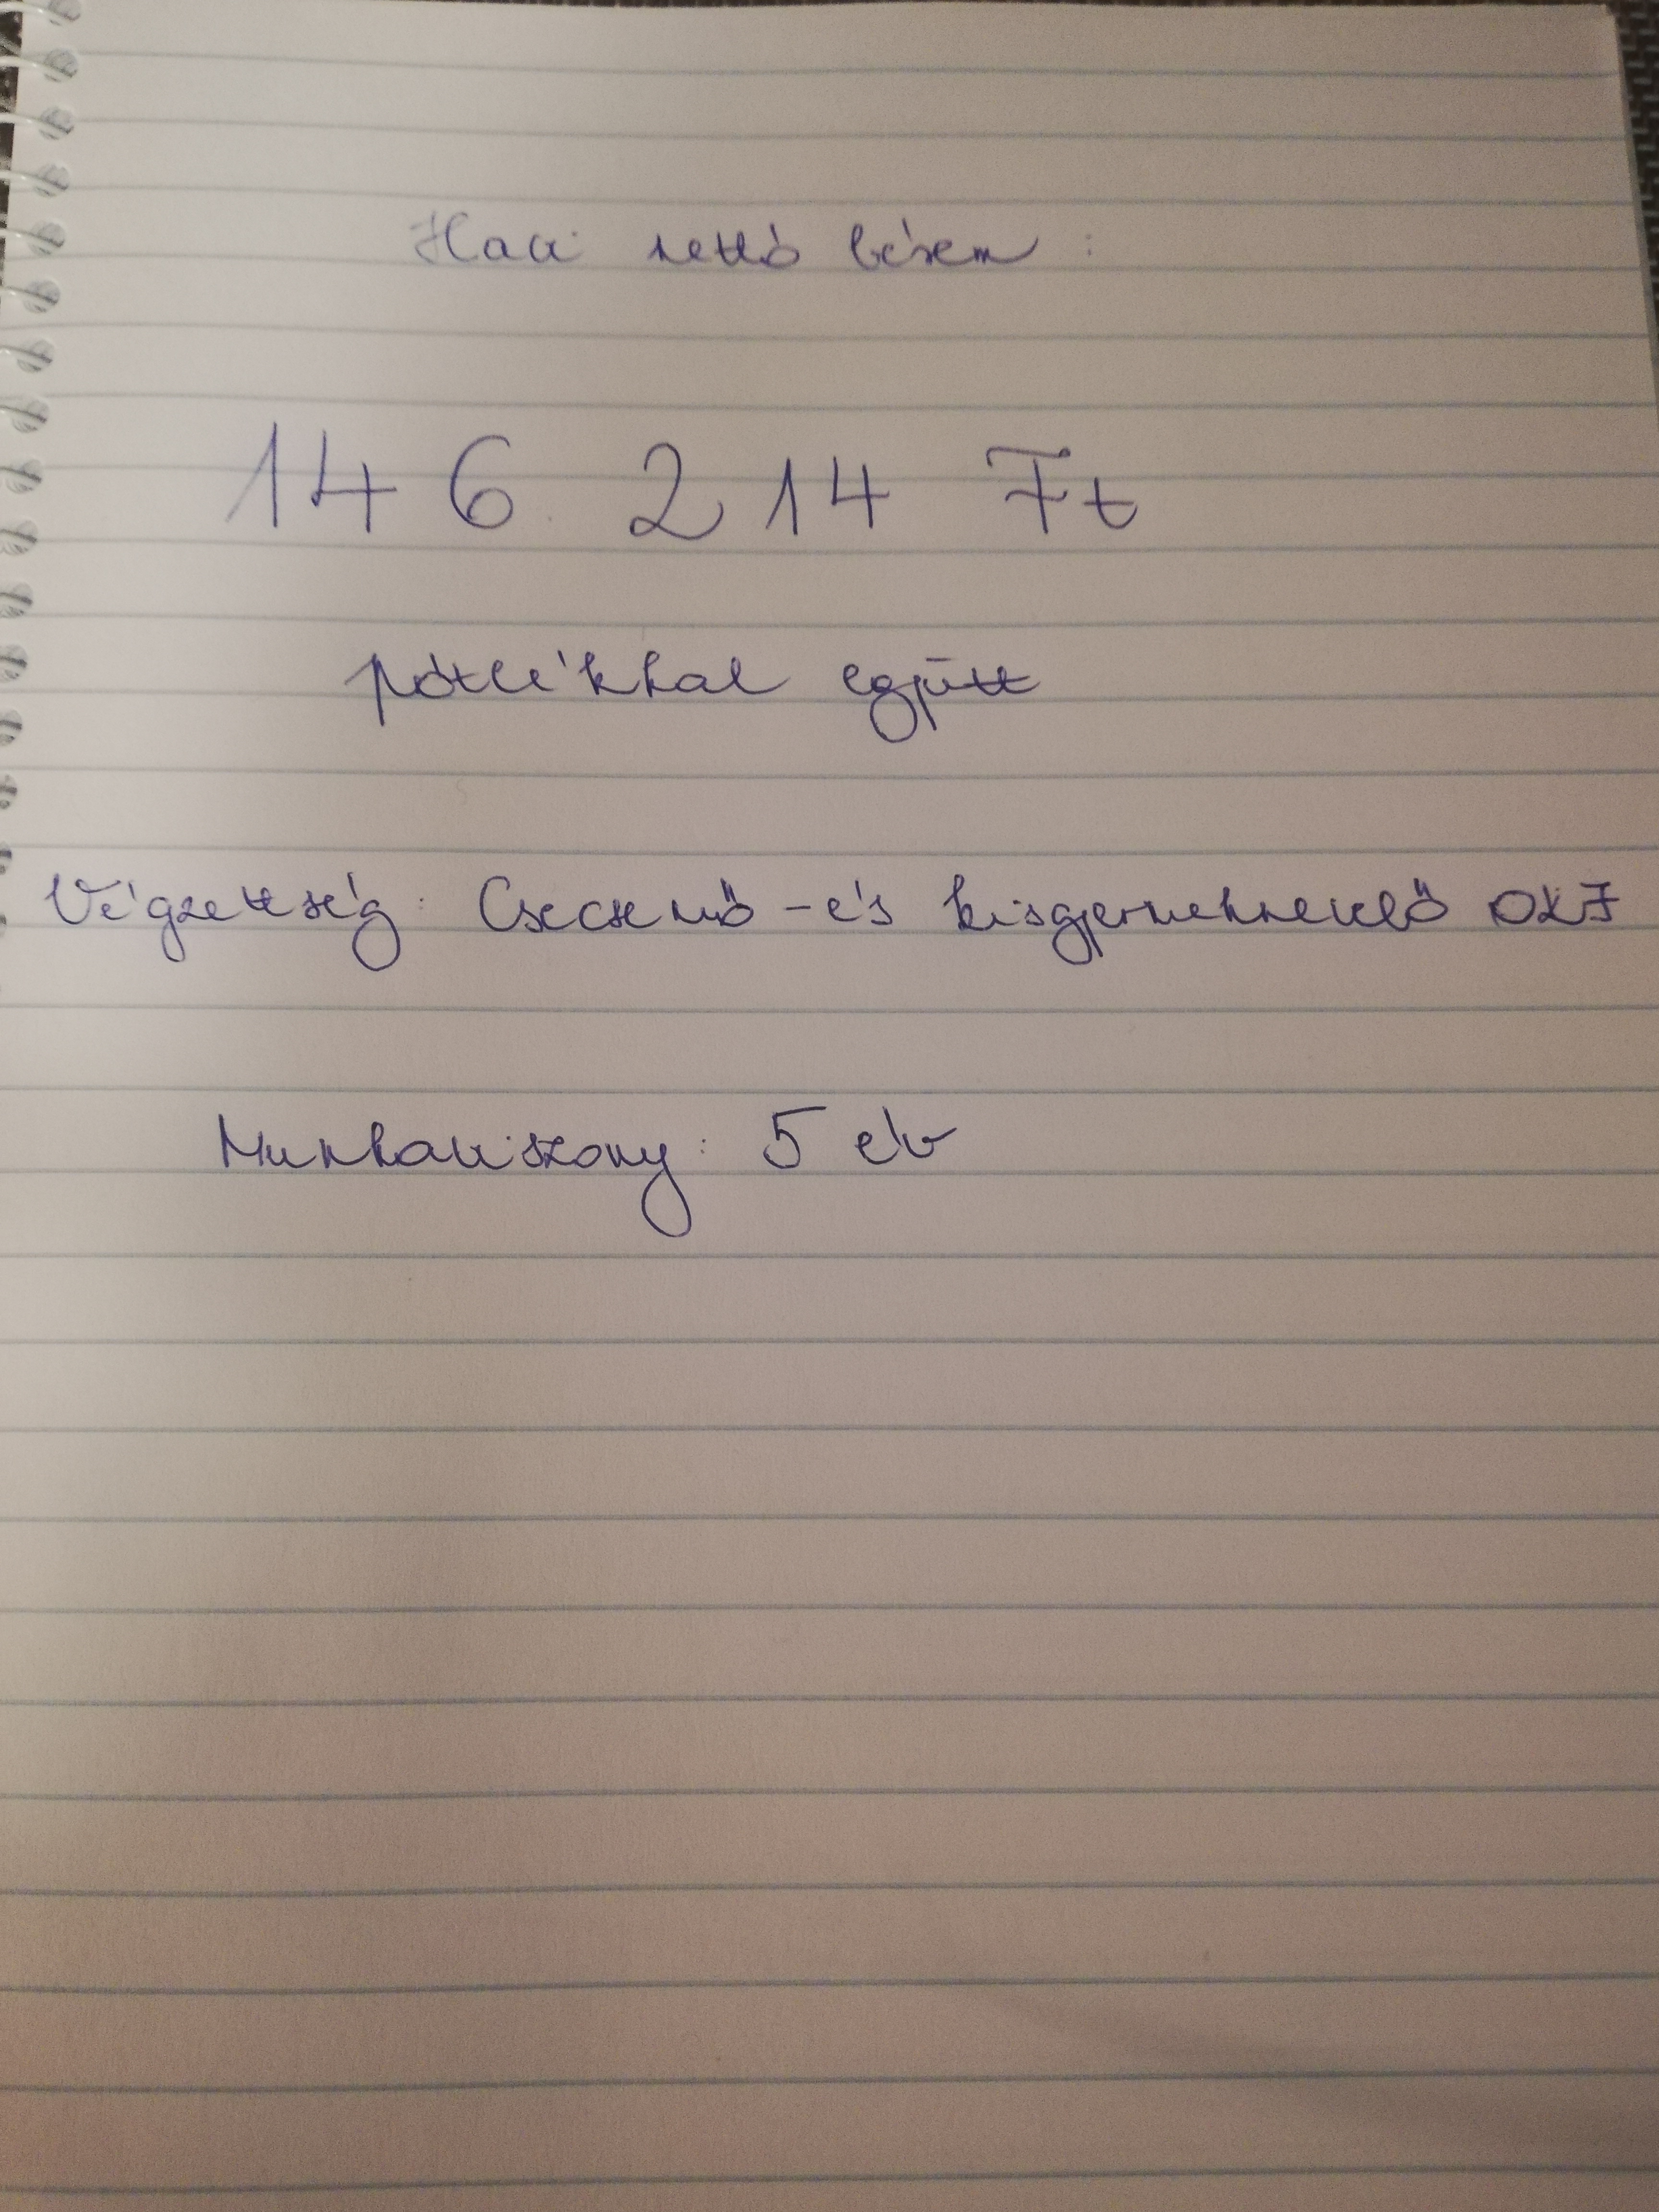 Havi nettó bérem :
146. 214 Ft
pótlékkal együtt
Végzettség: Csecsemő - és kisgyermeknevelő OKJ
Munkaviszony: 5 év